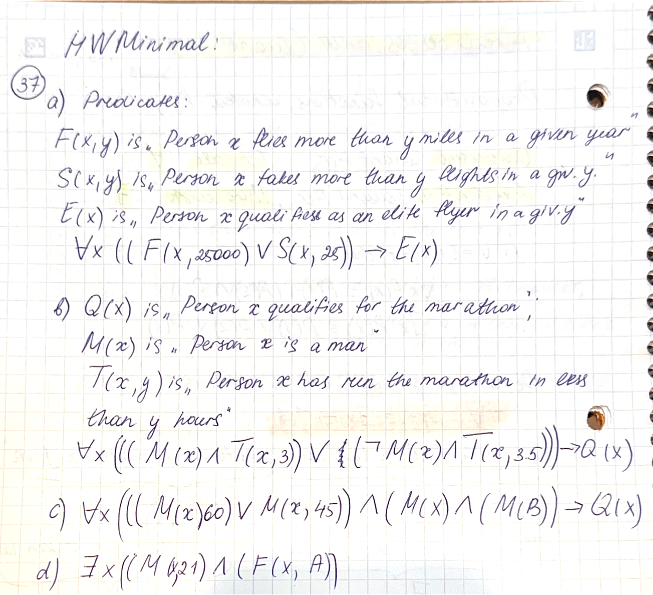 HW Minimal:
37
a) Predicates:
F(x,y) is „Person x flies more than y miles in a given year"
S(x,y) is „Person x takes more than y flights in a giv. y."
E(x) is „Person x qualifiess as an elite flyer in a giv.y"
∀x ((F(x,25000) ∨ S(x,25)) → E(x)
b) Q(x) is „Person x qualifies for the marathon";
M(x) is „Person x is a man"
T(x,y) is „Person x has run the marathon in less
than y hours"
∀x (((M(x) ∧ T(x,3)) ∨ ((¬M(x) ∧ T(x,3.5))) → Q(x)
c) ∀x (((M(x)60) ∨ M(x,45)) ∧ (M(x) ∧ (M(B)) → Q(x)
d) ∃x ((M(,21) ∧ (F(x, A))